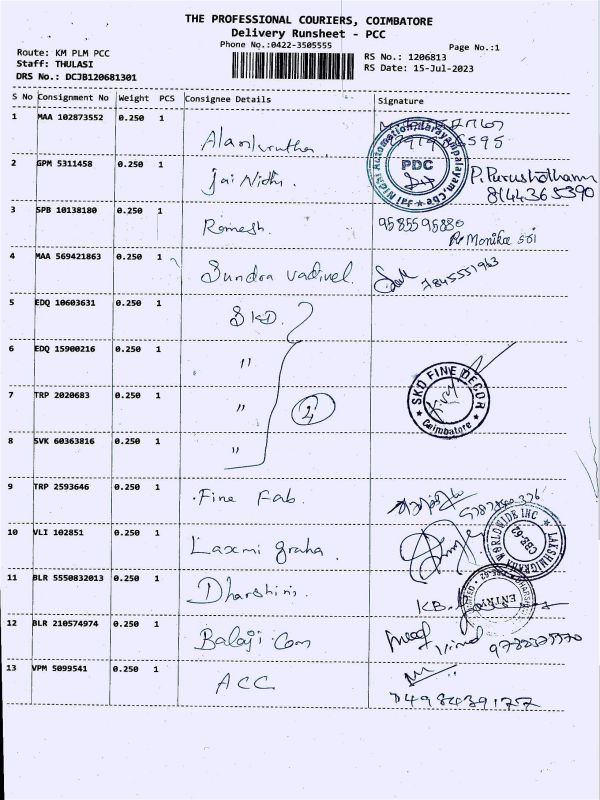 THE PROFESSIONAL COURIERS, COIMBATORE
Delivery Runsheet - PCC
Phone No.:0422-3505555
Page No.:1
Route: KM PLM PCC
Staff: THULASI
DRS No.: DCJB120681301
RS No.: 1206813
RS Date: 15-Jul-2023
S No Consignment No Weight PCS Consignee Details Signature
1 MAA 102873552 0.250 1
2 GPM 5311458 0.250 1 Jai Nidhi. PDC P. Purushothaman
8144365390
3 SPB 10138180 0.250 1 Romesh. 9585595880
Monika
4 MAA 569421863 0.250 1 Sundra vadivel. 7845551963
5 EDQ 10603631 0.250 1 SKD.
6 EDQ 15900216 0.250 1 "
7 TRP 2020683 0.250 1 " 4 SKD FINE DECOR Coimbatore
8 SVK 60363816 0.250 1 "
9 TRP 2593646 0.250 1 Fine Fab.
10 VLI 102851 0.250 1 Laxmi graha. LAKSHMIGRAHA WORLDWIDE INC CBE-62
11 BLR 5550832013 0.250 1 Dharshini. KB. ENTRY
12 BLR 210574974 0.250 1 Balaji Com
13 VPM 5099541 0.250 1 ACC